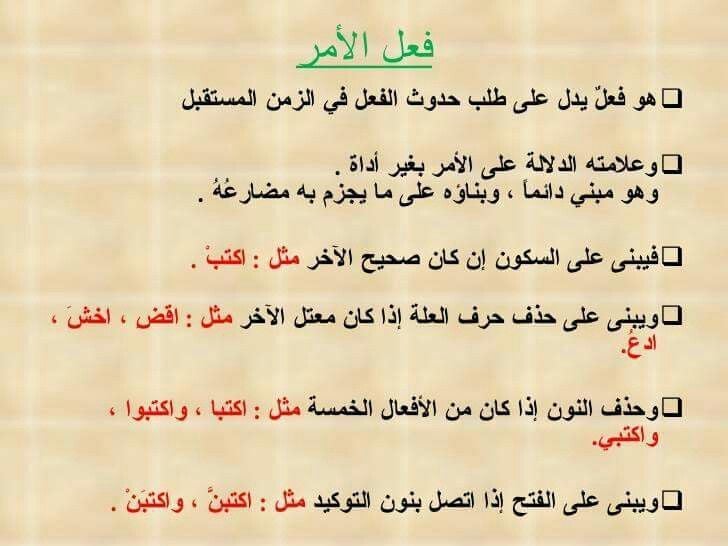 فعل الأمر
هو فعلٌ يدل على طلب حدوث الفعل في الزمن المستقبل
وعلامته الدلالة على الأمر بغير أداة .
وهو مبني دائماً ، وبناؤه على ما يجزم به مضارعُهُ .
فيبنى على السكون إن كان صحيح الآخر مثل : اكتبْ .
ويبنى على حذف حرف العلة إذا كان معتل الآخر مثل : اقضِ ، اخشَ ،
ادعُ.
وحذف النون إذا كان من الأفعال الخمسة مثل : اكتبا ، واكتبوا ،
واكتبي.
ويبنى على الفتح إذا اتصل بنون التوكيد مثل : اكتبنَّ ، واكتبَنْ .